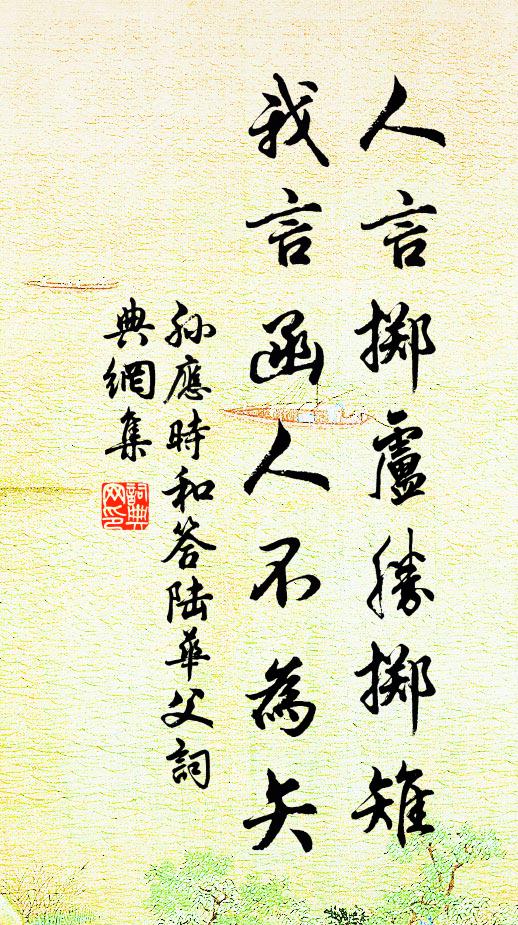 人言掷盧勝掷雉
我言函人不為矢
孙應時和答陆華父詞
典網集
詞典
网印